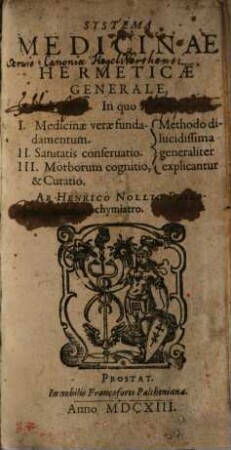 SYSTEMA
MEDICINÆ
HERMETICÆ
GENERALE,
In quo
I. Medicinæ veræ funda-
damentum.
II. Sanitatis conseruatio.
III. Morborum cognitio,
& Curatio,
Methodo di-
lucidissima
generaliter
explicantur
AB HENRICO NOLLIO
chymiatro.
PROSTAT.
In nobilis Francoforti Paltheniana.
Anno MDCXIII.